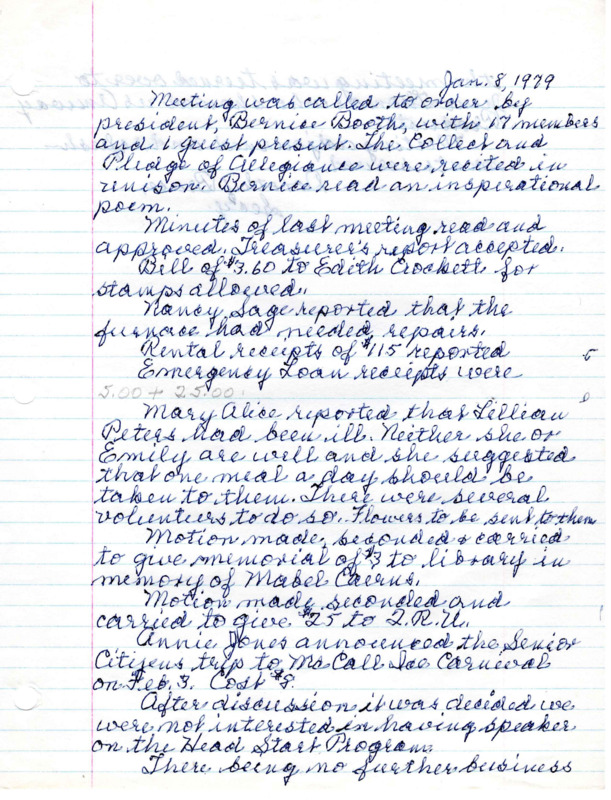 Jan. 8, 1979
Meeting was called to order by
president, Bernice Booth, with 17 members
and 1 guest present. The Collect and
Pledge of Allegiance were recited in
unison. Bernice read an insperational
poem.
Minutes of last meeting read and
approved. Treasurer's report accepted.
Bill of $3.60 to Edith Crockett for
stamps allowed.
Nancy Sage reported that the
furnace had needed repairs.
Rental receipts of $115 reported
Emergency Loan receipts were
5.00 + 25.00.
Mary Alice reported that Lillian
Peters had been ill. Neither she or
Emily are well and she suggested
that one meal a day should be
taken to them. There were several
volunteers to do so. Flowers to be sent to them
Motion made, seconded & carried
to give memorial of $3 to library in
memory of Mabel Cairns.
Motion made, seconded and
carried to give $25 to I.R.U.
Annie Jones announced the Senior
Citizens trip to McCall Ice Carnival
on Feb. 3. Cost $8.
After discussion it was decided we
were not interested in having speaker
on the Head Start Program.
There being no further business